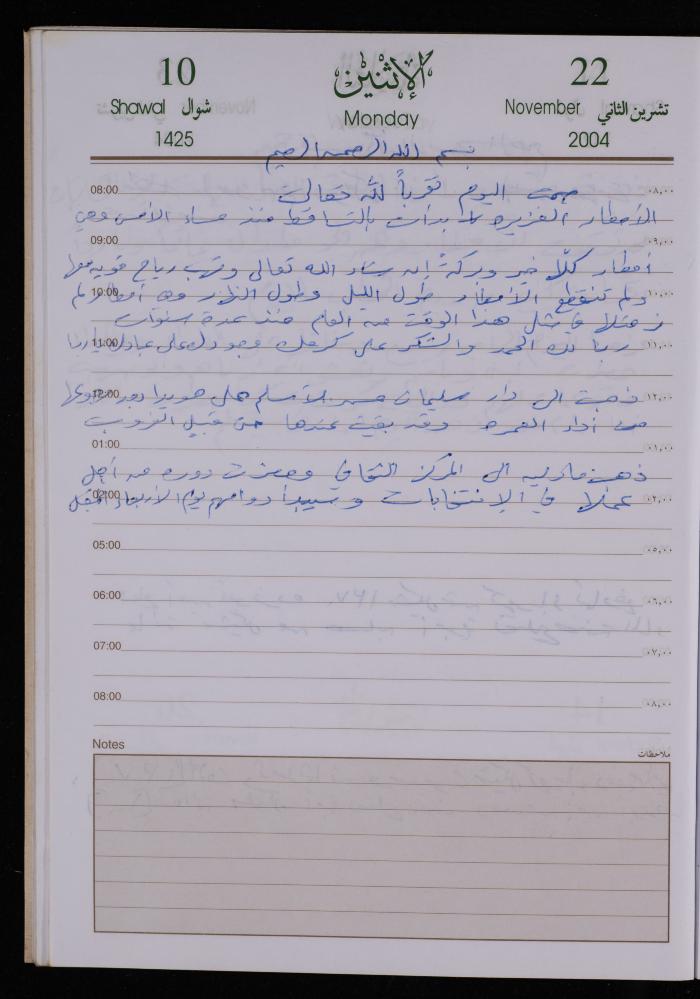 10 الإثنين 22
Shawal شوال Monday November تشرين الثاني
1425 2004
بسم الله الرحمن الرحيم
08:00 صمت اليوم تقرباً لله تعالى ٠٨,٠٠
الأمطار الغزيره بدأت بالتساقط منذ مساء الأمس وهي
09:00 ٠٩,٠٠
أمطار كلّها خير وبركة إن شاء الله تعالى وتهب رياح قويه معها
10:00 ولم تنقطع الأمطار طول الليل وطول النهار وهي أمطار لم ١٠,٠٠
نر مثلها في مثل هذا الوقت من العام منذ عدة سنوات
11:00 ربنا لك الحمد والشكر على كرمك وجودك على عبادك يا ربنا ١١,٠٠
12:00 ذهبت الى دار سليمان للأسلم على هويدا بعد رجوعها ١٢,٠٠
من أداء العمره وقد بقيت عندها حتى قبيل الغروب
01:00 ٠١,٠٠
ذهبت الى المركز الثقافي وحضرت دوره من أجل
02:00 عملها في الإنتخابات وسيبدأ دوامهم يوم الأربعاء المقبل ٠٢,٠٠
05:00 ٠٥,٠٠
06:00 ٠٦,٠٠
07:00 ٠٧,٠٠
08:00 ٠٨,٠٠
Notes ملاحظات